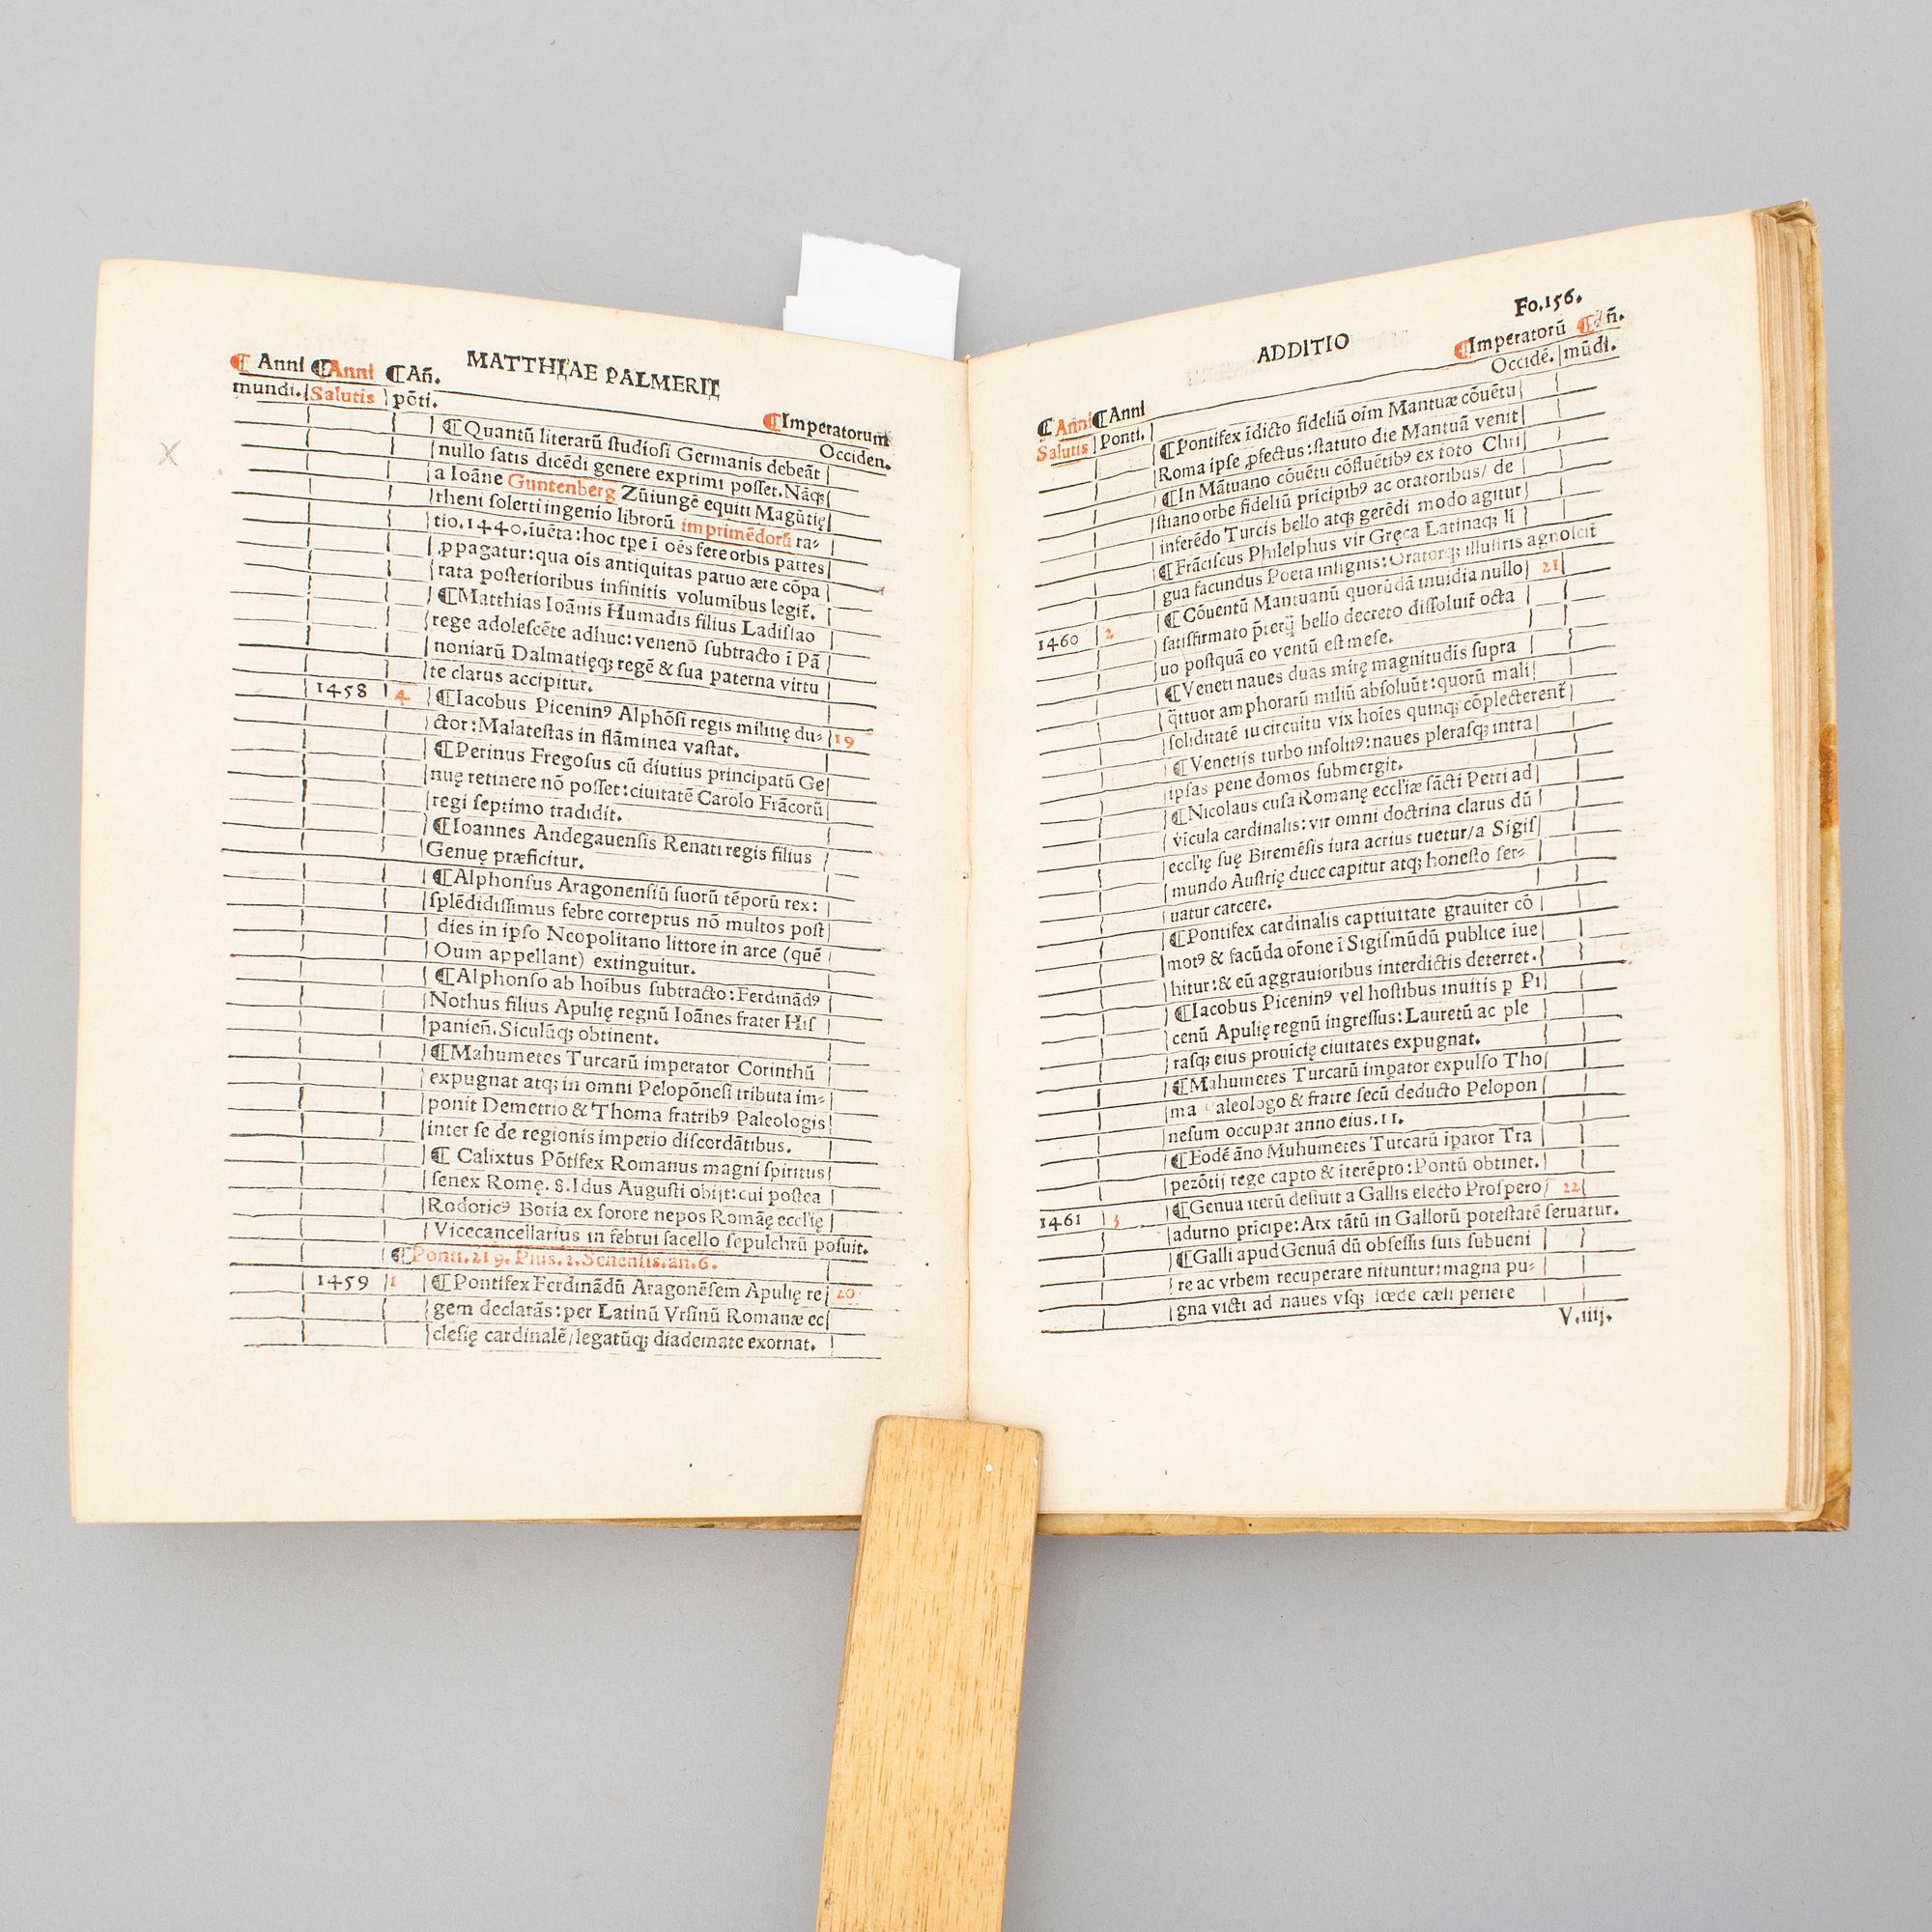 MATTHIAE PALMERII
¶ Anni ¶Anni ¶Añ.
mundi. Salutis põti.
¶Imperatorum
Occiden.
¶Quantũ literarũ ſtudioſi Germanis debeãt
nullo ſatis dicẽdi genere exprimi poſſet. Nãqꝫ
a Ioãne Guntenberg Zũiungẽ equiti Magũtię
rheni ſolerti ingenio librorũ imprimẽdorũ ra-
tio. 1440. iuẽta: hoc tpe ĩ oẽs fere orbis partes
ꝓpagatur: qua oĩs antiquitas paruo ære cõpa
rata poſterioribus infinitis volumibus legit̃.
¶Matthias Ioãnis Humadis filius Ladiſlao
rege adoleſcẽte adhuc: veneno ſubtracto ĩ Pã
noniarũ Dalmatięqꝫ regẽ & ſua paterna virtu
te clarus accipitur.
1458 4 ¶Iacobus Piceninꝰ Alphõſi regis militię du-
ctor: Malateſtas in flãminea vaſtat. 19
¶Perinus Fregoſus cũ diutius principatũ Ge
nuę retinere nõ poſſet: ciuitatẽ Carolo Frãcorũ
regi ſeptimo tradidit.
¶Ioannes Andegauenſis Renati regis filius
Genuę præficitur.
¶Alphonſus Aragonenſiũ ſuorũ tẽporũ rex:
ſplẽdidiſſimus febre correptus nõ multos poſt
dies in ipſo Neopolitano littore in arce (quẽ
Oum appellant) extinguitur.
¶Alphonſo ab hoĩbus ſubtracto: Ferdinãdꝰ
Nothus filius Apulię regnũ Ioãnes frater Hiſ
panieñ. Siculũqꝫ obtinent.
¶Mahumetes Turcarũ imperator Corinthũ
expugnat atqꝫ in omni Pelopõneſi tributa im-
ponit Demetrio & Thoma fratribꝰ Paleologis
inter ſe de regionis imperio diſcordãtibus.
¶ Calixtus Põtifex Romanus magni ſpiritus
ſenex Romę. 8. Idus Auguſti obijt: cui poſtea
Rodoricꝰ Boria ex ſorore nepos Romãę eccl'ię
Vicecancellarius in februi ſacello ſepulchrũ poſuit.
¶Ponti. 219. Pius. 2. Senenſis. an. 6.
1459 1 ¶Pontifex Ferdinãdũ Aragonẽſem Apulię re 20
gem declarãs: per Latinũ Vrſinũ Romanæ ec
cleſię cardinalẽ/legatũqꝫ diademate exornat.
Fo. 156.
ADDITIO
¶Imperatorũ ñ.
Occidẽ. mũdi.
¶Anni ¶Anni
Salutis Ponti.
¶Pontifex ĩdicto fideliũ oĩm Mantuæ cõuẽtu
Roma ipſe ꝓfectus: ſtatuto die Mantuã venit
¶In Mãtuano cõuẽtu cõfluẽtibꝰ ex toto Chri
ſtiano orbe fideliũ prĩcipibꝰ ac oratoribus/ de
inferẽdo Turcis bello atqꝫ gerẽdi modo agitur
¶Frãciſcus Philelphus vir Gręca Latinaqꝫ li
gua facundus Poeta inſignis: Oratorqꝫ illuſtris agnoſcit̃
1460 2 ¶Cõuentũ Mantuanũ quorũdã inuidia nullo 21
ſatiſfirmato p̃terq̃ bello decreto diſſoluit̃ octa
uo poſtquã eo ventũ eſt meſe.
¶Veneti naues duas mirę magnitudis ſupra
q̃ttuor amphorarũ miliũ abſoluũt: quorũ mali
ſoliditatẽ iu circuitu vix hoĩes quinqꝫ cõplecterent̃
¶Venetijs turbo inſolitꝰ: naues pleraſqꝫ intra
ipſas pene domos ſubmergit.
¶Nicolaus cuſa Romanę eccl'iæ ſãcti Petri ad
vĩcula cardinalis: vir omni doctrina clarus dũ
eccl'ię ſuę Biremẽſis iura acrius tuetur/a Sigiſ
mundo Auſtrię duce capitur atqꝫ honeſto ſer-
uatur carcere.
¶Pontifex cardinalis captiuitate grauiter cõ
motꝰ & facũda or̃one ĩ Sigiſmũdũ publice iue
hitur: & eũ aggrauioribus interdictis deterret.
¶Iacobus Piceninꝰ vel hoſtibus inuitis p Pi
cenũ Apulię regnũ ingreſſus: Lauretũ ac ple
raſqꝫ eius prouĩcię ciuitates expugnat.
¶Mahumetes Turcarũ imꝑator expulſo Tho
ma aleologo & fratre ſecũ deducto Pelopon
neſum occupat anno eius. 11.
¶Eodẽ ãno Muhumetes Turcarũ ĩꝑator Tra
pezõtij rege capto & ĩterẽpto: Pontũ obtinet.
1461 3 ¶Genua iterũ deſiuit a Gallis electo Proſpero 22
adurno prĩcipe: Arx tãtũ in Gallorũ poteſtatẽ ſeruatur.
¶Galli apud Genuã dũ obſeſſis ſuis ſubueni
re ac vrbem recuperare nituntur: magna pu-
gna victi ad naues vſqꝫ fœde cæſi periere
V.iiij.